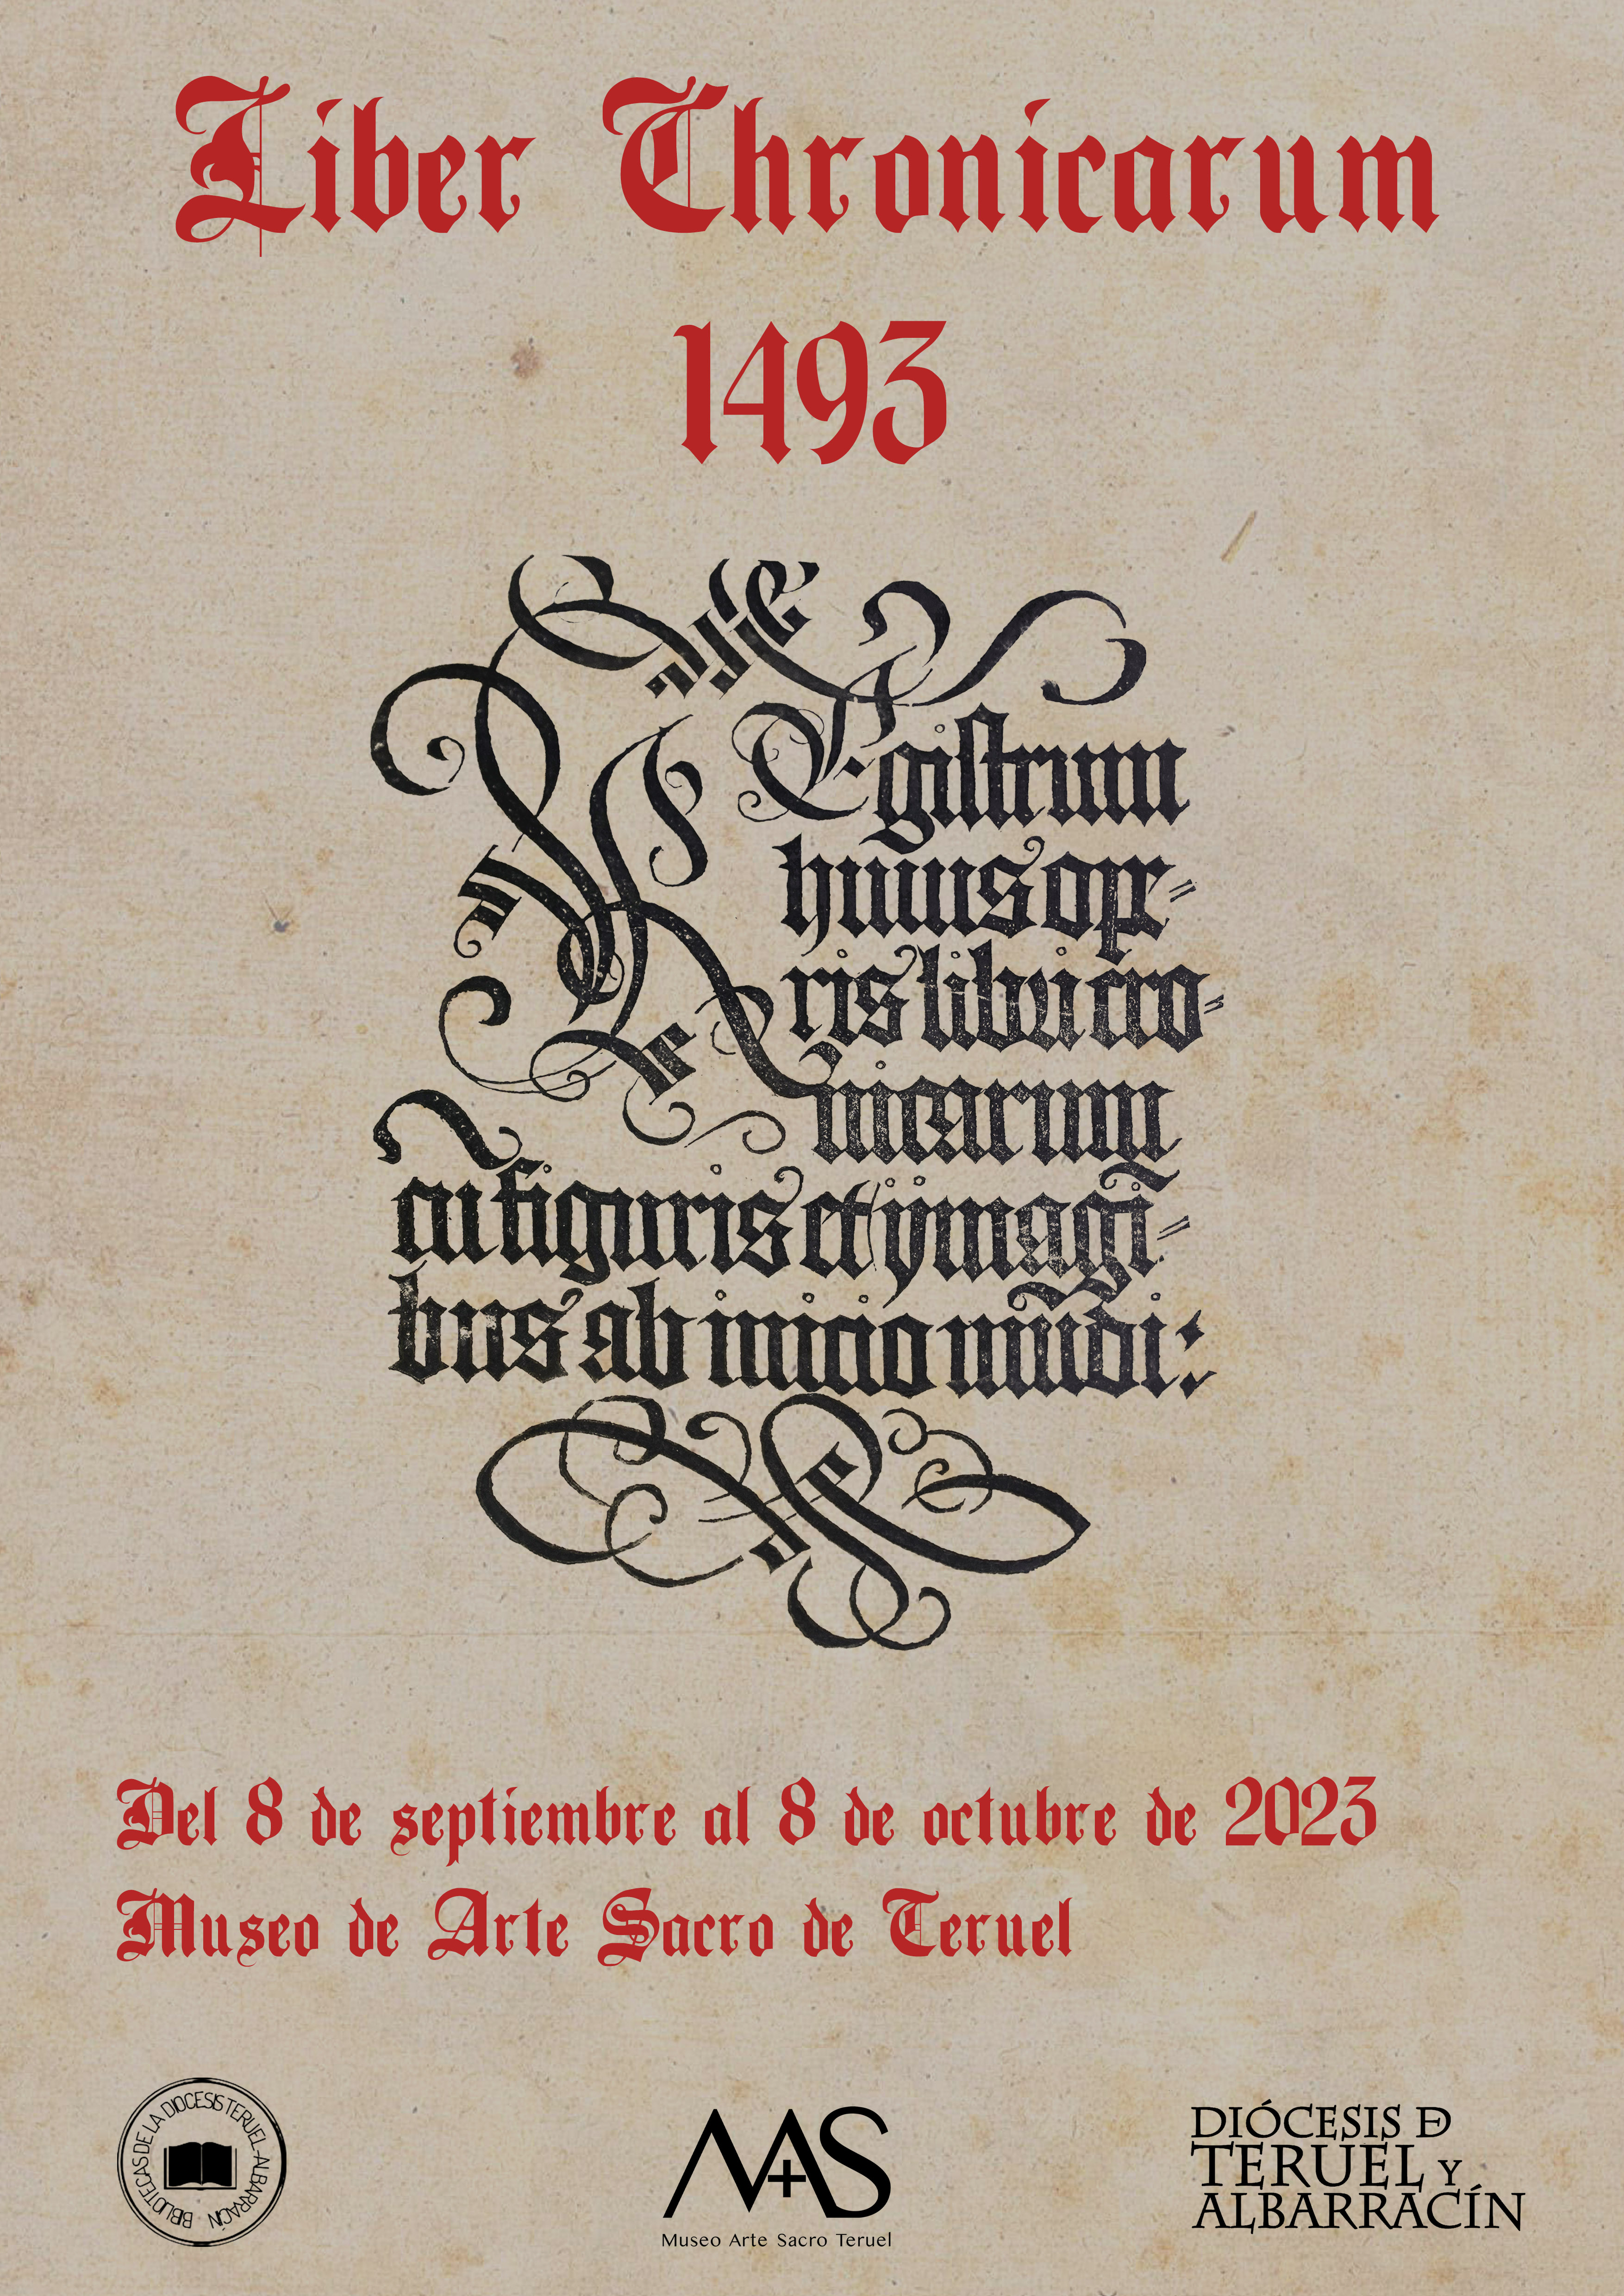 Liber Chronicarum
1493
Registrum
huius ope-
ris libri cro-
nicarum
cũ figuris et ymagĩ-
bus ab inicio mũdi:
Del 8 de septiembre al 8 de octubre de 2023
Museo de Arte Sacro de Teruel
BIBLIOTECAS DE LA DIOCESIS TERUEL-ALBARRACÍN
MAS
Museo Arte Sacro Teruel
DIÓCESIS DE
TERUEL Y
ALBARRACÍN